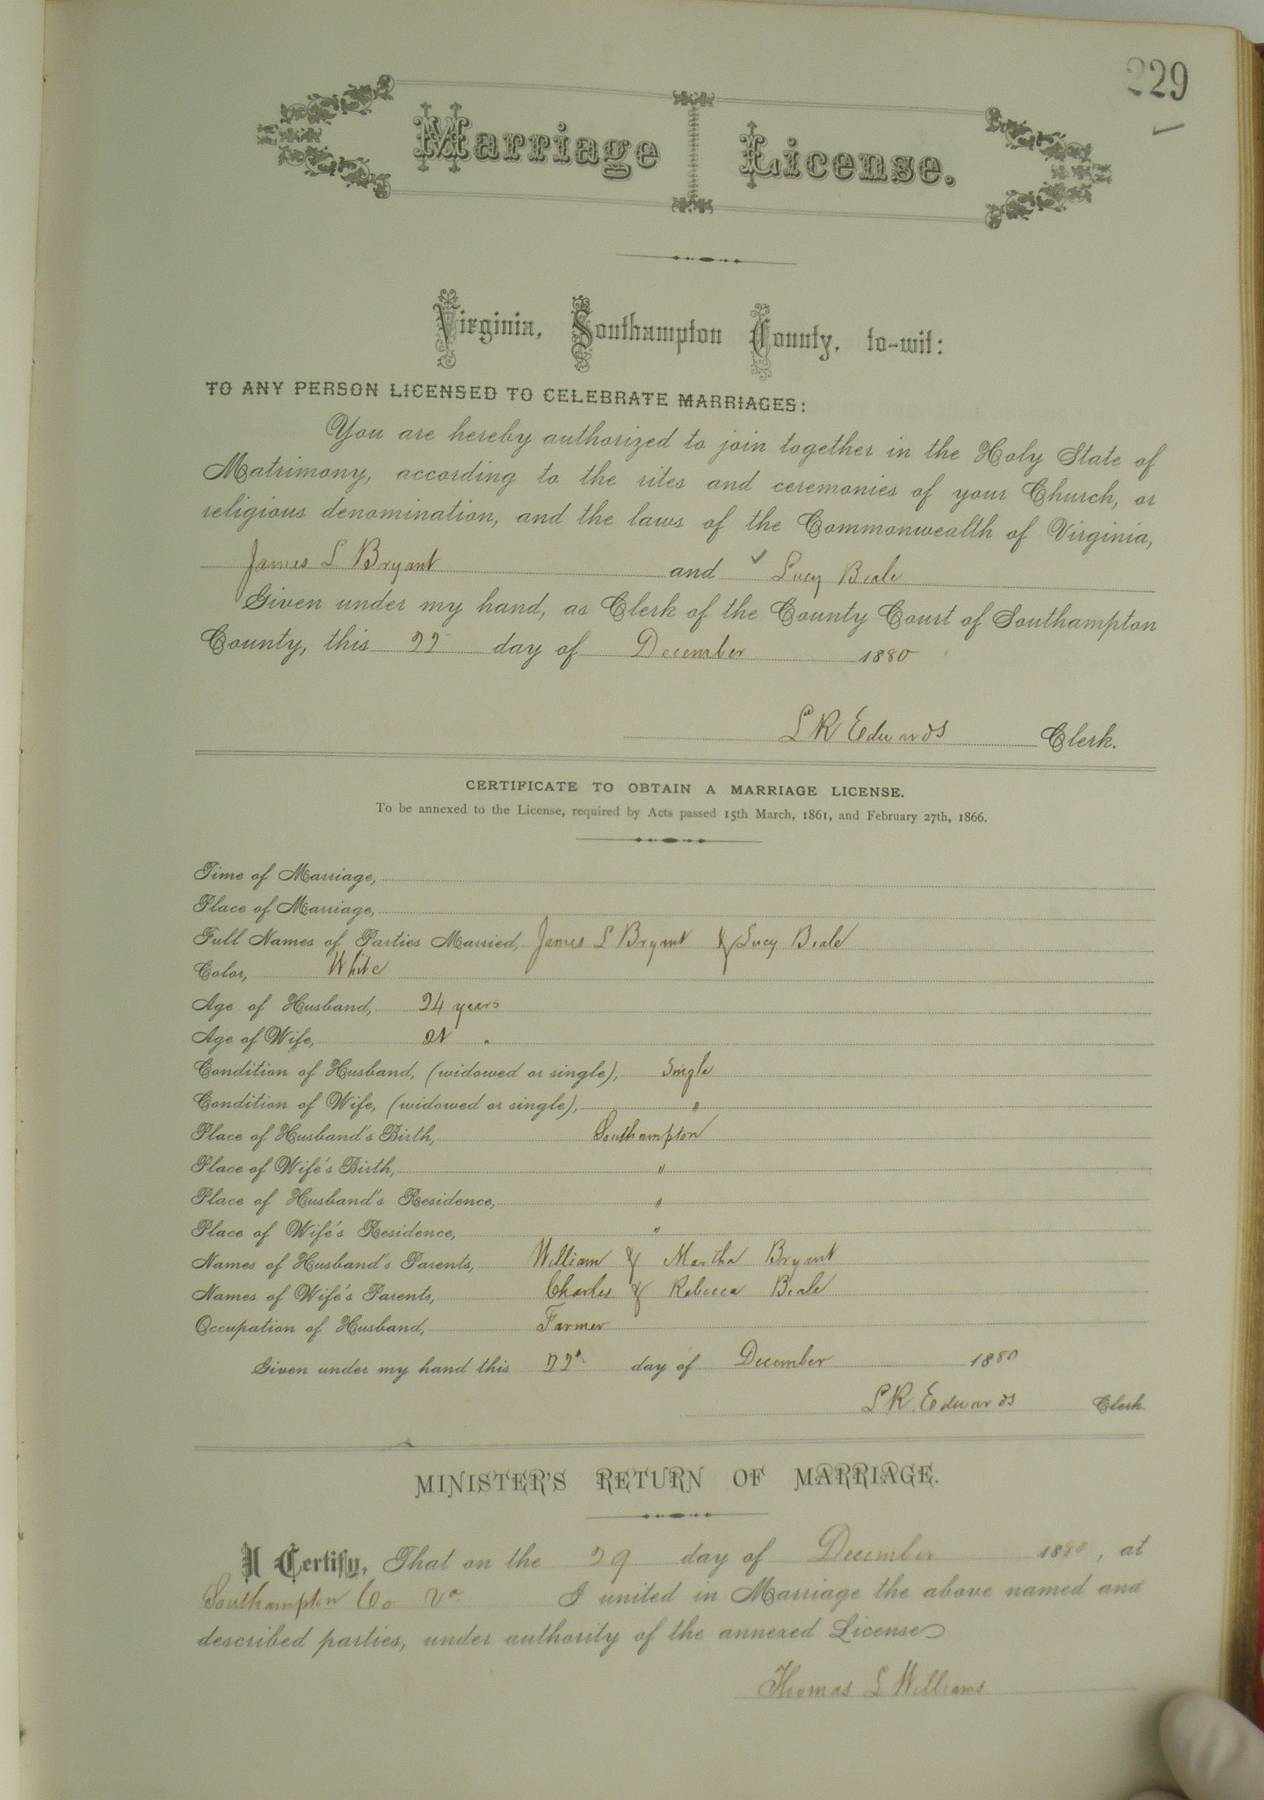 229
Marriage License.
Virginia, Southampton County, to-wit:
TO ANY PERSON LICENSED TO CELEBRATE MARRIAGES:
You are hereby authorized to join together in the Holy State of
Matrimony, according to the rites and ceremonies of your Church, or
religious denomination, and the laws of the Commonwealth of Virginia,
James L Bryant and ✓ Lucy Beale
Given under my hand, as Clerk of the County Court of Southampton
County, this 22 day of December 1880
L R Edwards Clerk.
CERTIFICATE TO OBTAIN A MARRIAGE LICENSE.
To be annexed to the License, required by Acts passed 15th March, 1861, and February 27th, 1866.
Time of Marriage,
Place of Marriage,
Full Names of Parties Married, James L Bryant & Lucy Beale
Color, White
Age of Husband, 24 years
Age of Wife, "
Condition of Husband, (widowed or single), Single
Condition of Wife, (widowed or single), "
Place of Husband's Birth, Southampton
Place of Wife's Birth, "
Place of Husband's Residence, "
Place of Wife's Residence, "
Names of Husband's Parents, William & Martha Bryant
Names of Wife's Parents, Charles & Rebecca Beale
Occupation of Husband, Farmer
Given under my hand this 22d day of December 1880
L R. Edwards Clerk
MINISTER'S RETURN OF MARRIAGE.
I Certify, That on the 29 day of December 1880, at
Southampton Co Va I united in Marriage the above named and
described parties, under authority of the annexed License
Thomas L Williams